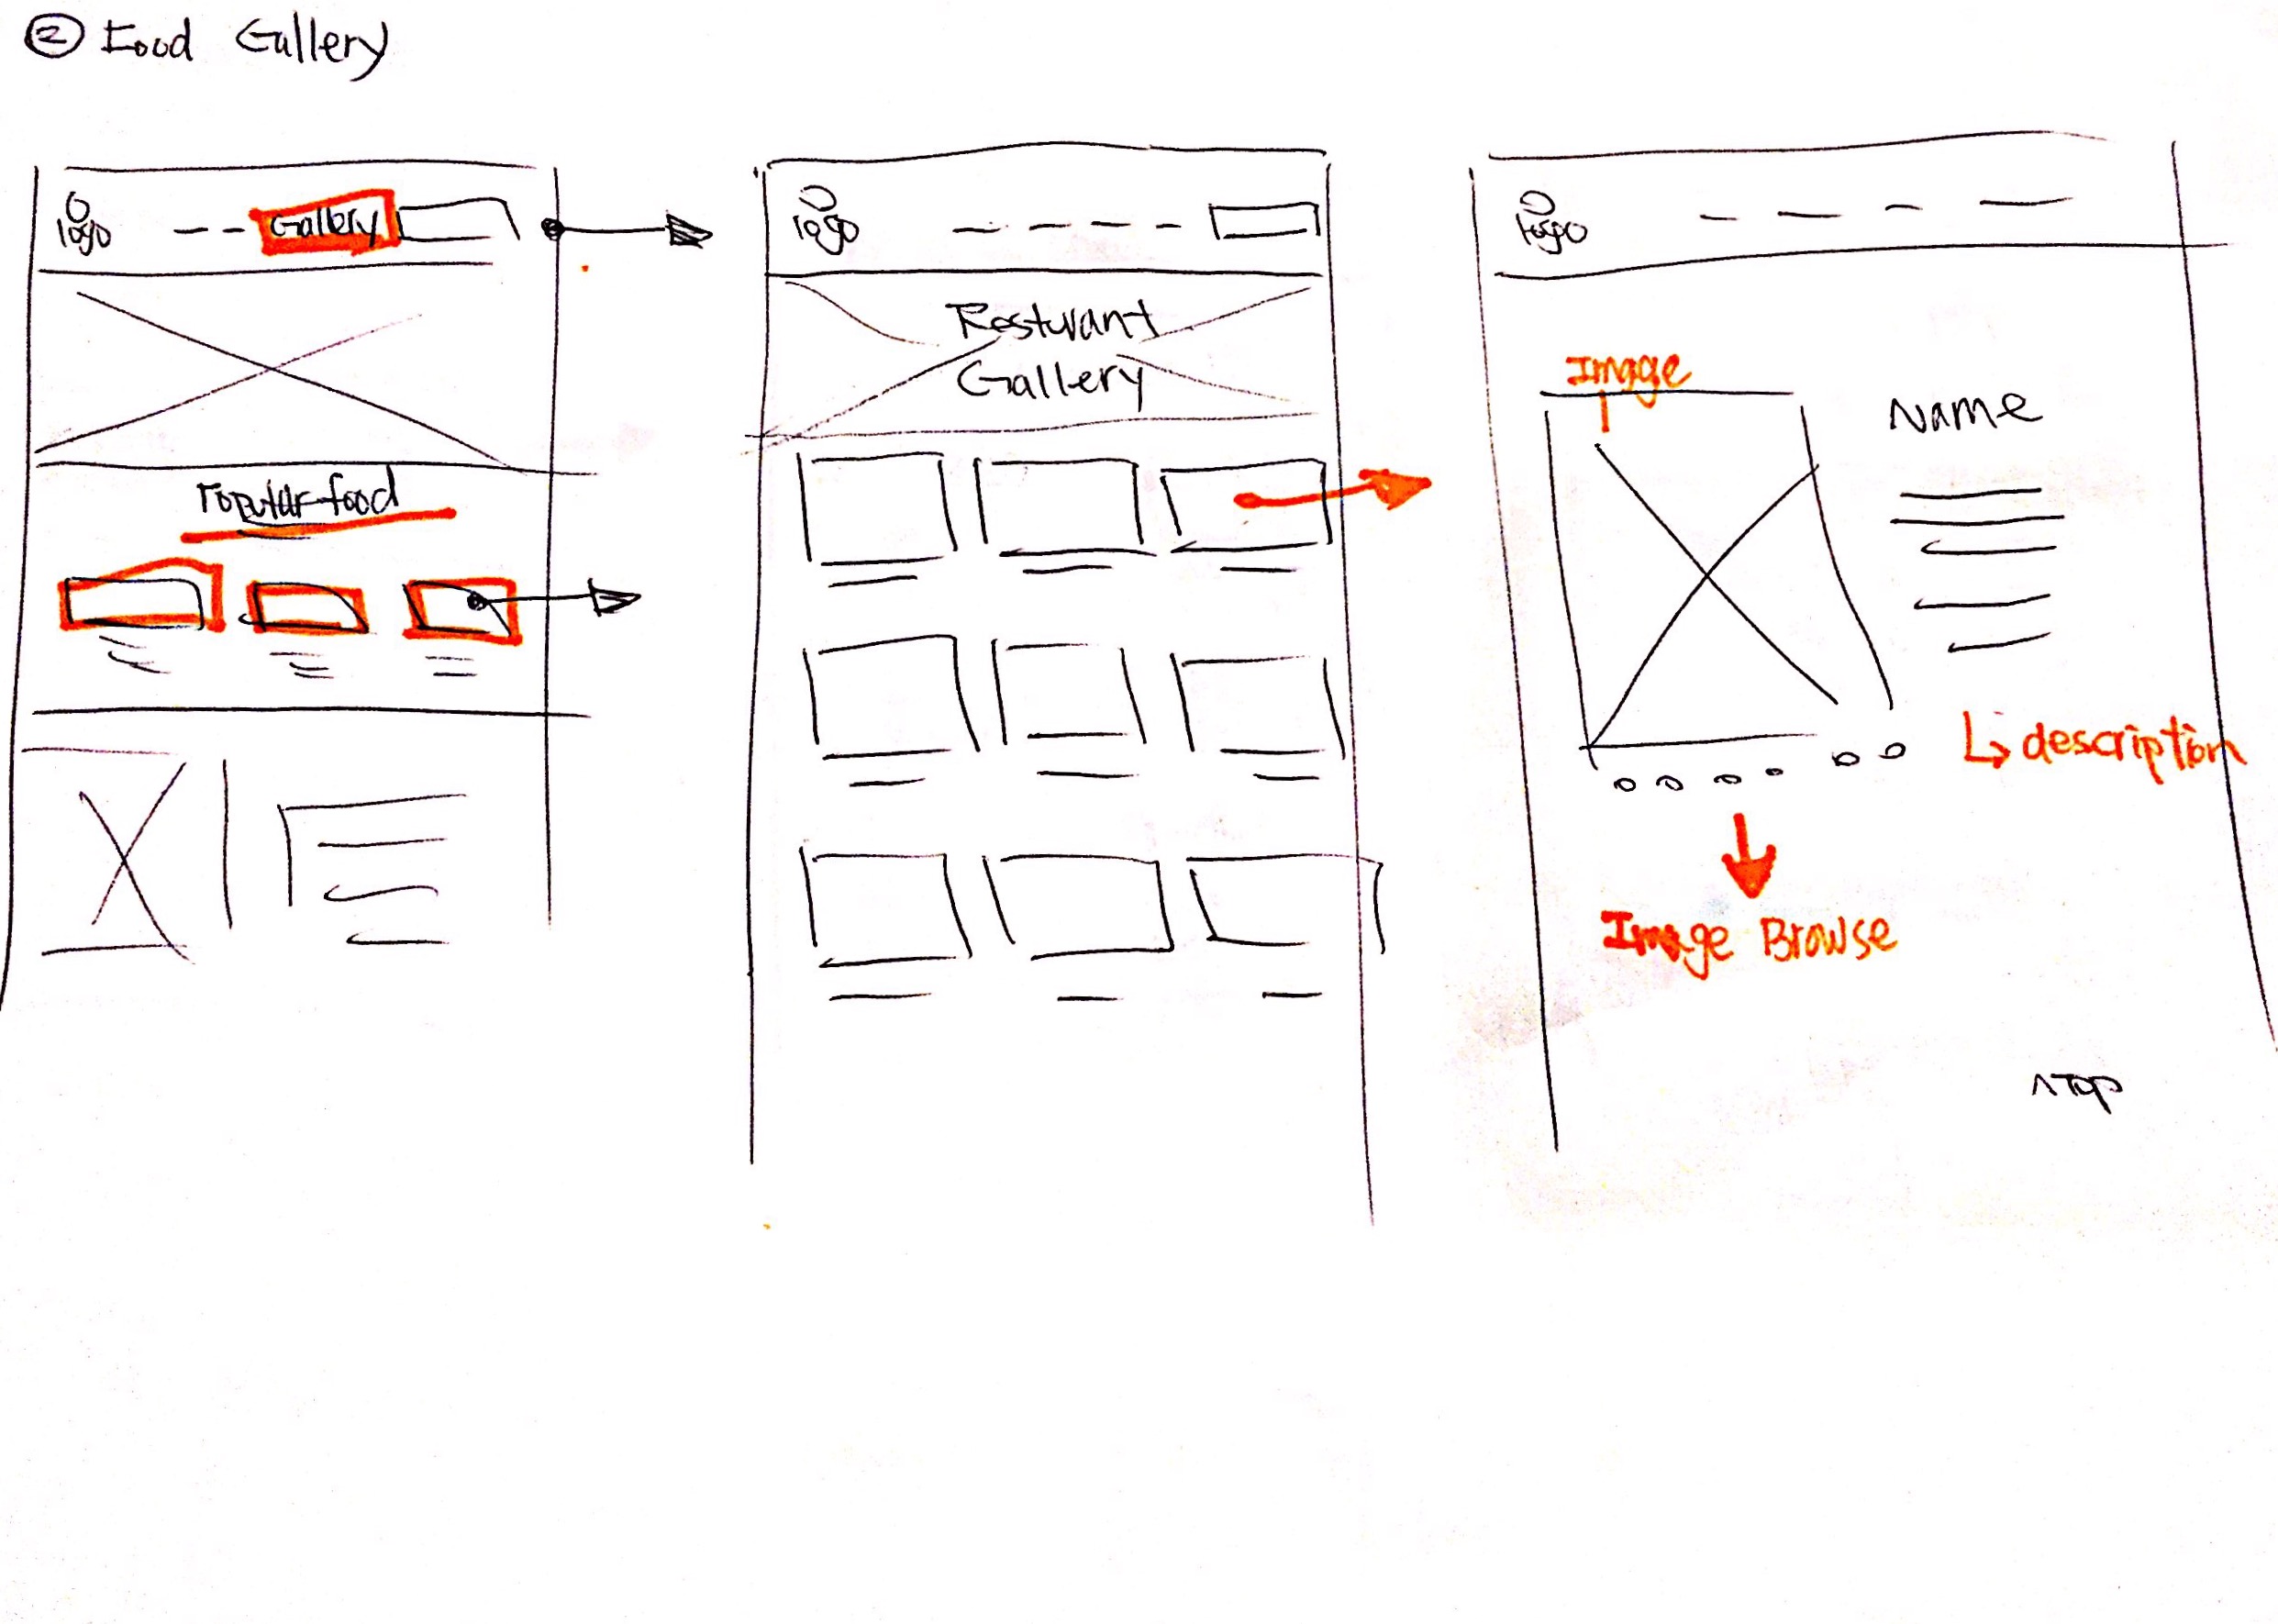 ② Food Gallery
logo
Gallery
Popular food
logo
Resturant
Gallery
logo
Image
Name
description
Image Browse
^ Top